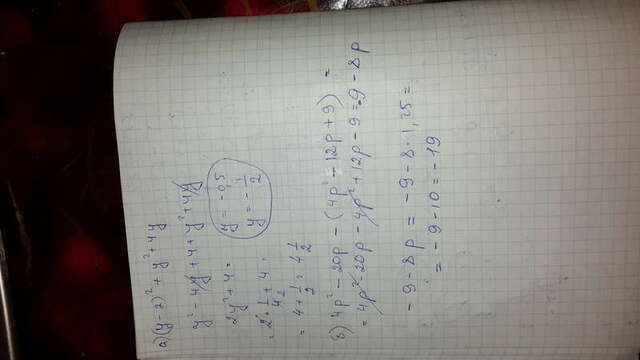 а) (y-2)² + y² + 4y
y² - 4y + 4 + y² + 4y
2y² + 4 =
y = -0,5
y = -1/2
= 2 · 1/4 + 4 =
= 4 + 1/2 = 4 1/2
б) 4p² - 20p - (4p² - 12p + 9) =
= 4p² - 20p - 4p² + 12p - 9 = -9 - 8p
-9 - 8p = -9 - 8 · 1,25 =
= -9 - 10 = -19